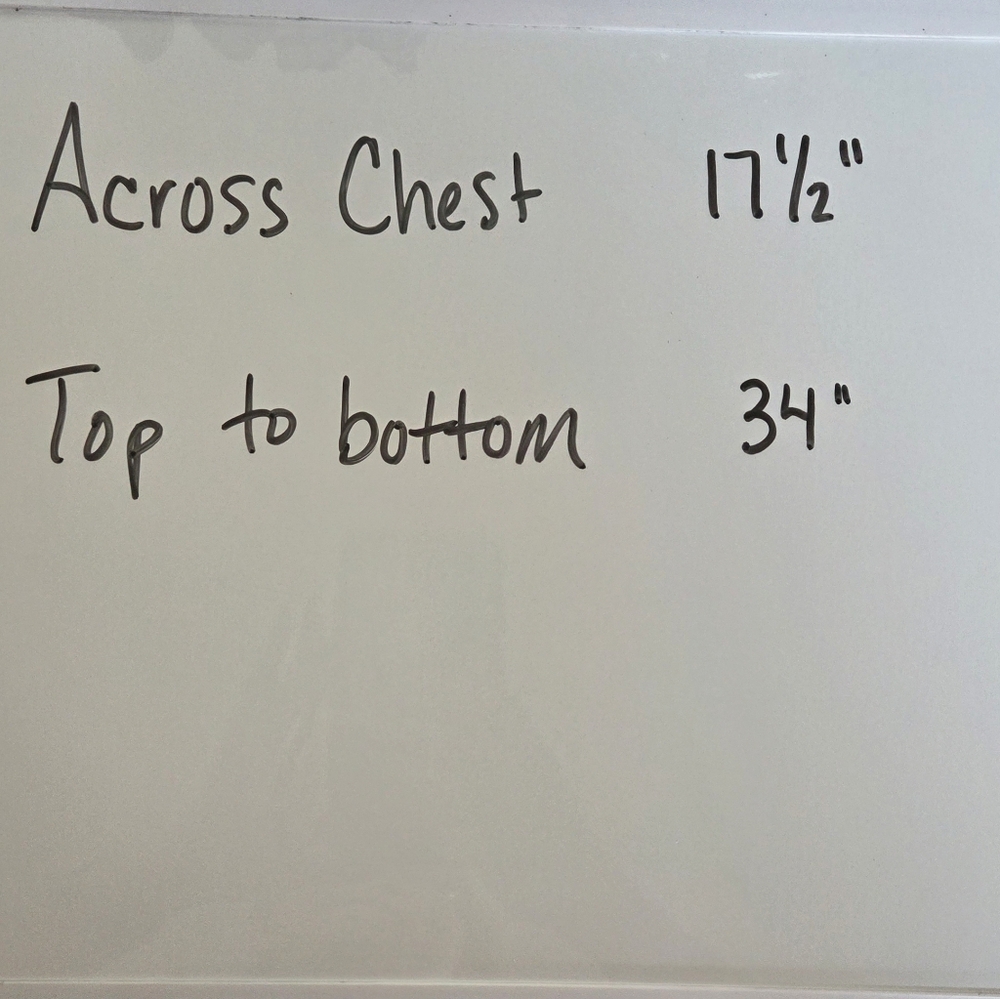 Across Chest 17 1/2"
Top to bottom 34"